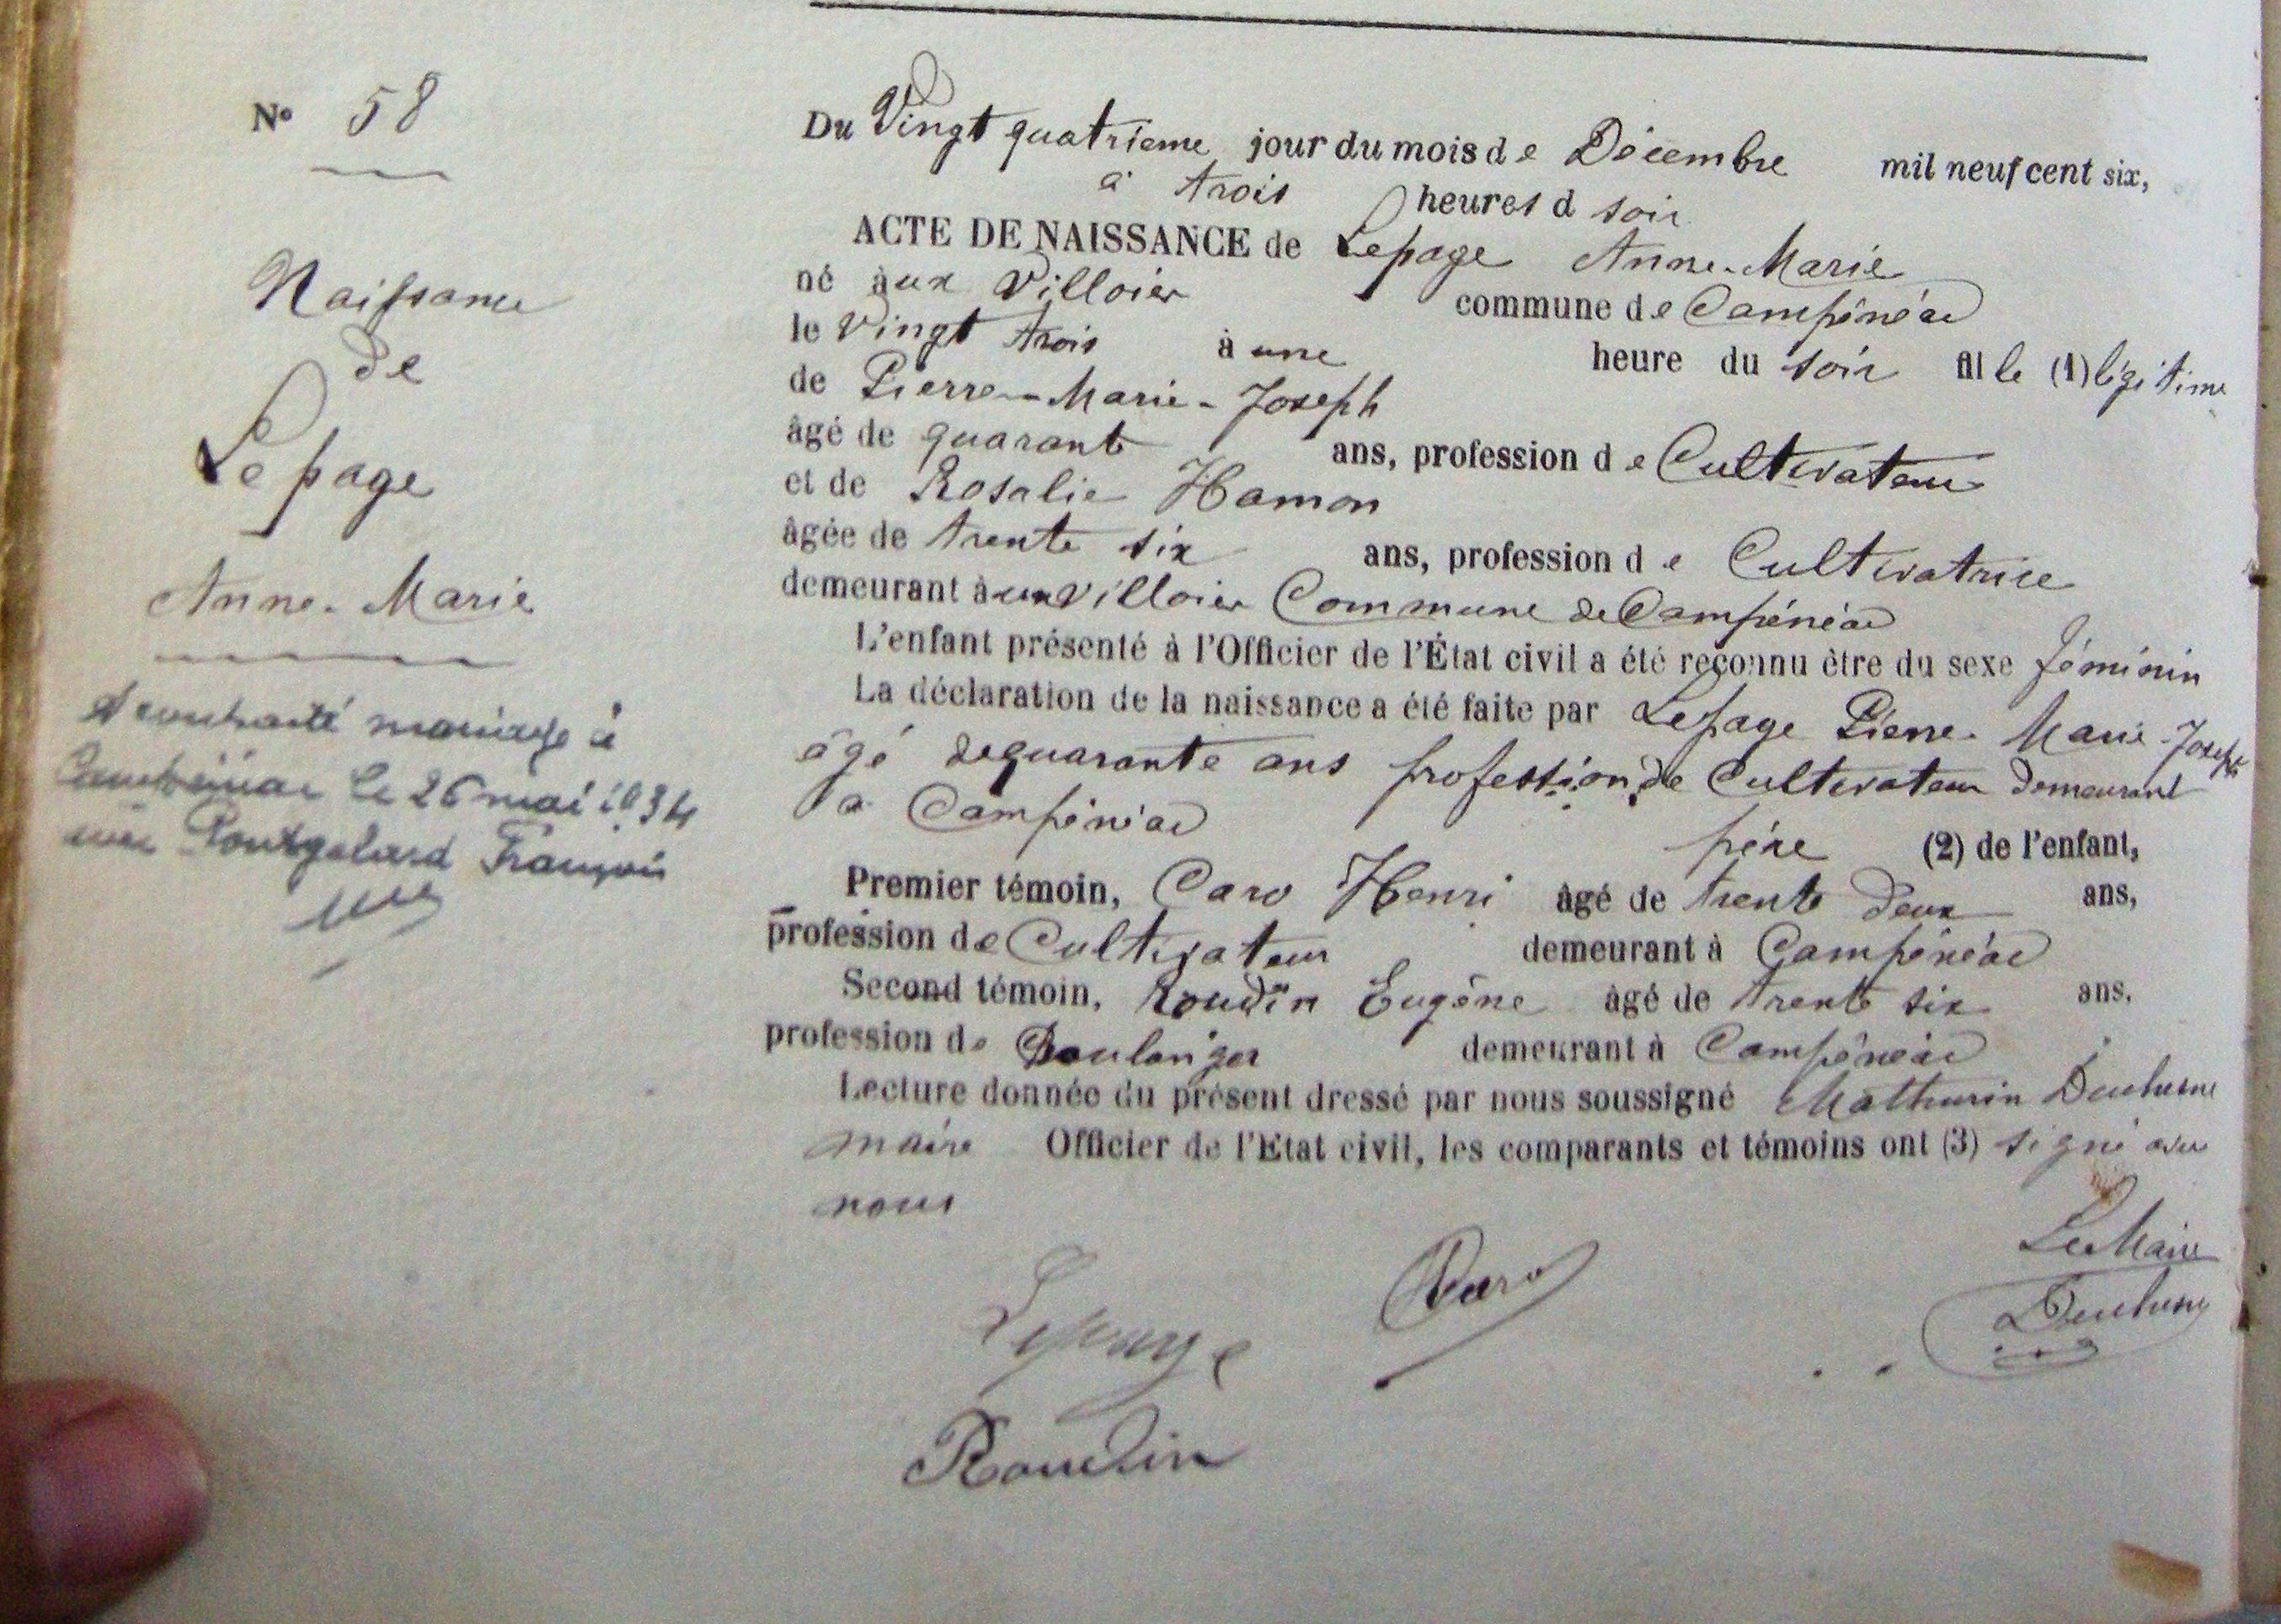 N° 58
Naissance
de
Lepage
Anne-Marie
A contracté mariage à
Campénéac le 26 mai 1934
avec François
Du Vingt quatrième jour du mois de Décembre mil neuf cent six,
à trois heures d soir
ACTE DE NAISSANCE de Lepage Anne-Marie
né àux Villoier commune de Campénéac
le Vingt trois à une heure du soir fille (1) légitime
de Pierre-Marie-Joseph
âgé de quarante ans, profession de Cultivateur
et de Rosalie Hamon
âgée de trente six ans, profession de Cultivatrice
demeurant àux Villoier Commune de Campénéac
L'enfant présenté à l'Officier de l'État civil a été reconnu être du sexe féminin
La déclaration de la naissance a été faite par Lepage Pierre-Marie-Joseph
âgé de quarante ans profession de Cultivateur demeurant
à Campénéac père (2) de l'enfant,
Premier témoin, Caro Henri âgé de trente deux ans,
profession de Cultivateur demeurant à Campénéac
Second témoin, Roudin Eugène âgé de trente six ans.
profession de Boulanger demeurant à Campénéac
Lecture donnée du présent dressé par nous soussigné Mathurin Duchesne
maire Officier de l'Etat civil, les comparants et témoins ont (3) signé avec
nous
Le Maire
Lepage Caro Duchesne
Roudin